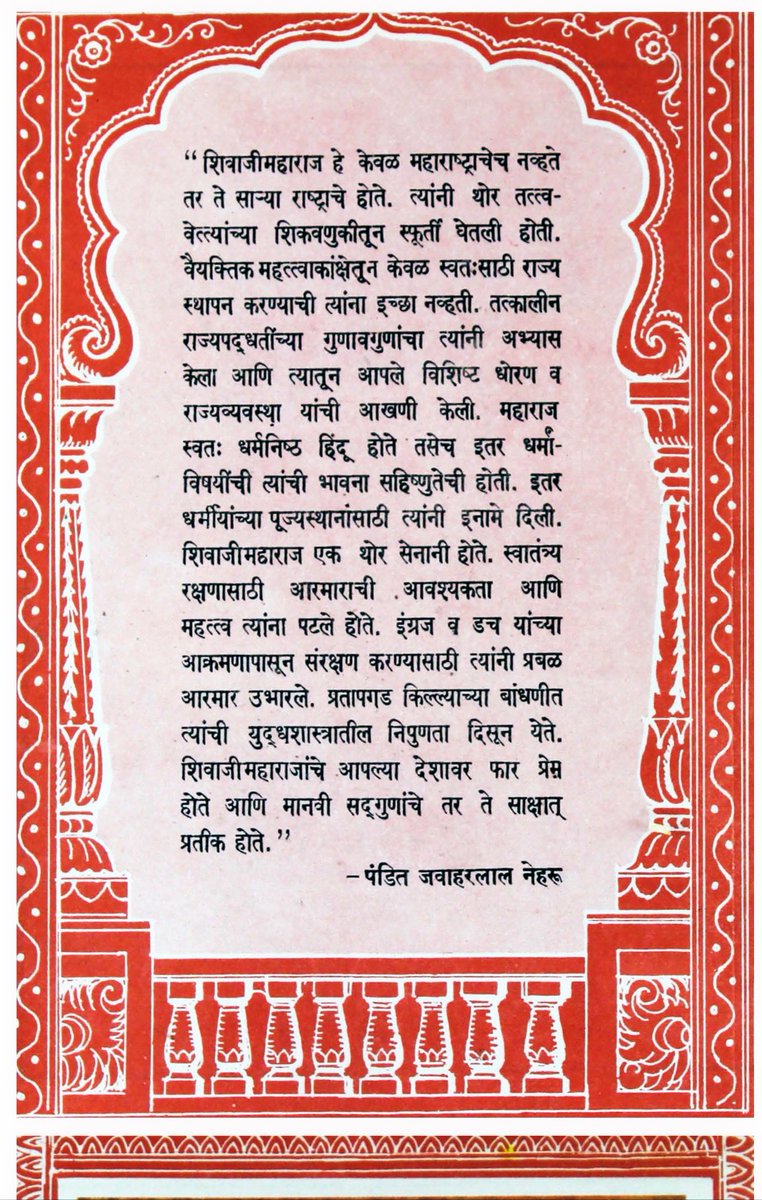 “शिवाजीमहाराज हे केवळ महाराष्ट्राचेच नव्हते
तर ते साऱ्या राष्ट्राचे होते. त्यांनी थोर तत्त्व-
वेत्त्यांच्या शिकवणुकीतून स्फूर्ती घेतली होती.
वैयक्तिक महत्त्वाकांक्षेतून केवळ स्वतःसाठी राज्य
स्थापन करण्याची त्यांना इच्छा नव्हती. तत्कालीन
राज्यपद्धतींच्या गुणावगुणांचा त्यांनी अभ्यास
केला आणि त्यातून आपले विशिष्ट धोरण व
राज्यव्यवस्था यांची आखणी केली. महाराज
स्वतः धर्मनिष्ठ हिंदू होते तसेच इतर धर्मां-
विषयींची त्यांची भावना सहिष्णुतेची होती. इतर
धर्मीयांच्या पूज्यस्थानांसाठी त्यांनी इनामे दिली.
शिवाजीमहाराज एक थोर सेनानी होते. स्वातंत्र्य
रक्षणासाठी आरमाराची आवश्यकता आणि
महत्त्व त्यांना पटले होते. इंग्रज व डच यांच्या
आक्रमणापासून संरक्षण करण्यासाठी त्यांनी प्रबळ
आरमार उभारले. प्रतापगड किल्ल्याच्या बांधणीत
त्यांची युद्धशास्त्रातील निपुणता दिसून येते.
शिवाजीमहाराजांचे आपल्या देशावर फार प्रेम
होते आणि मानवी सद्‌गुणांचे तर ते साक्षात्
प्रतीक होते.”
–पंडित जवाहरलाल नेहरू